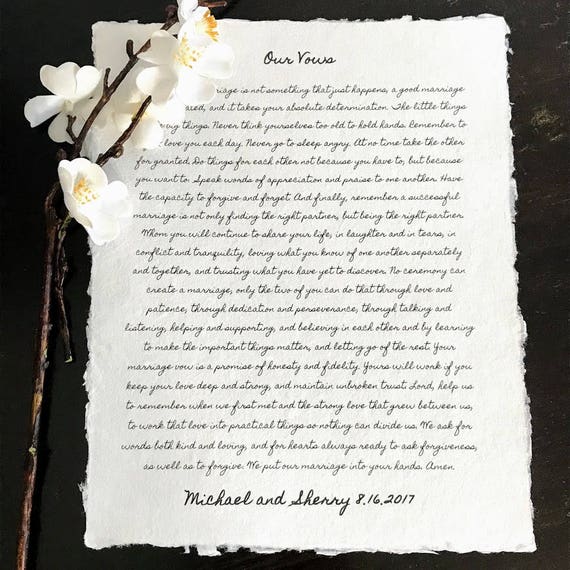 Our Vows
riage is not something that just happens, a good marriage
and it takes your absolute determination. The little things
things. Never think yourselves too old to hold hands. Remember to
love you each day. Never go to sleep angry. At no time take the other
for granted. Do things for each other not because you have to, but because
you want to. Speak words of appreciation and praise to one another. Have
the capacity to forgive and forget. And finally, remember a successful
marriage is not only finding the right partner, but being the right partner.
Whom you will continue to share your life, in laughter and in tears, in
conflict and tranquility, loving what you know of one another separately
and together, and trusting what you have yet to discover. No ceremony can
create a marriage, only the two of you can do that through love and
patience, through dedication and perseverance, through talking and
listening, helping and supporting, and believing in each other and by learning
to make the important things matter, and letting go of the rest. Your
marriage vow is a promise of honesty and fidelity. Yours will work if you
keep your love deep and strong, and maintain unbroken trust. Lord, help us
to remember when we first met and the strong love that grew between us,
to work that love into practical things so nothing can divide us. We ask for
words both kind and loving, and for hearts always ready to ask forgiveness,
as well as to forgive. We put our marriage into your hands. Amen.
Michael and Sherry 8.16.2017